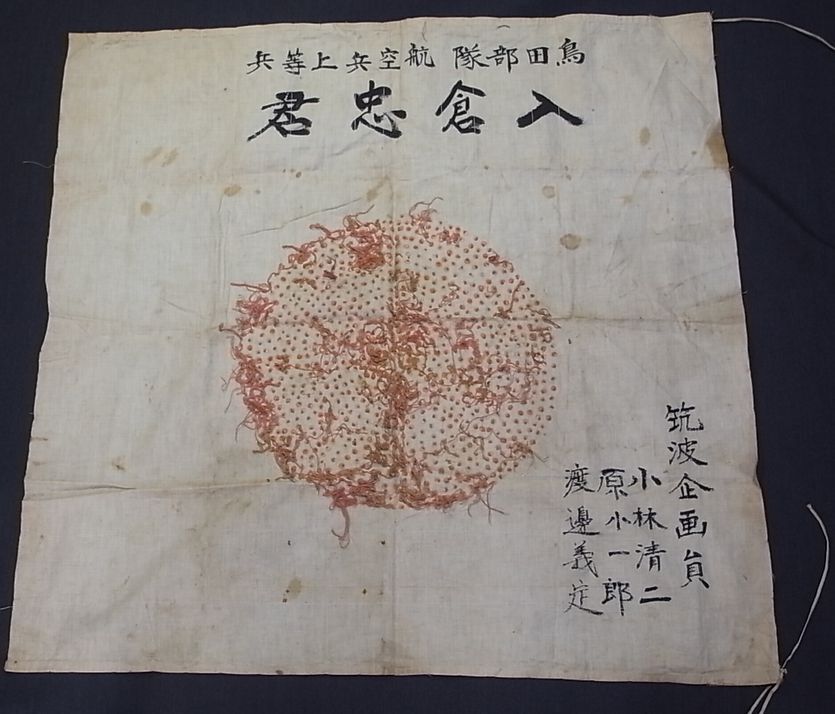 鳥田部隊 航空兵上等兵
入倉忠君
筑波企画員
小林清二
原小一郎
渡邊義定